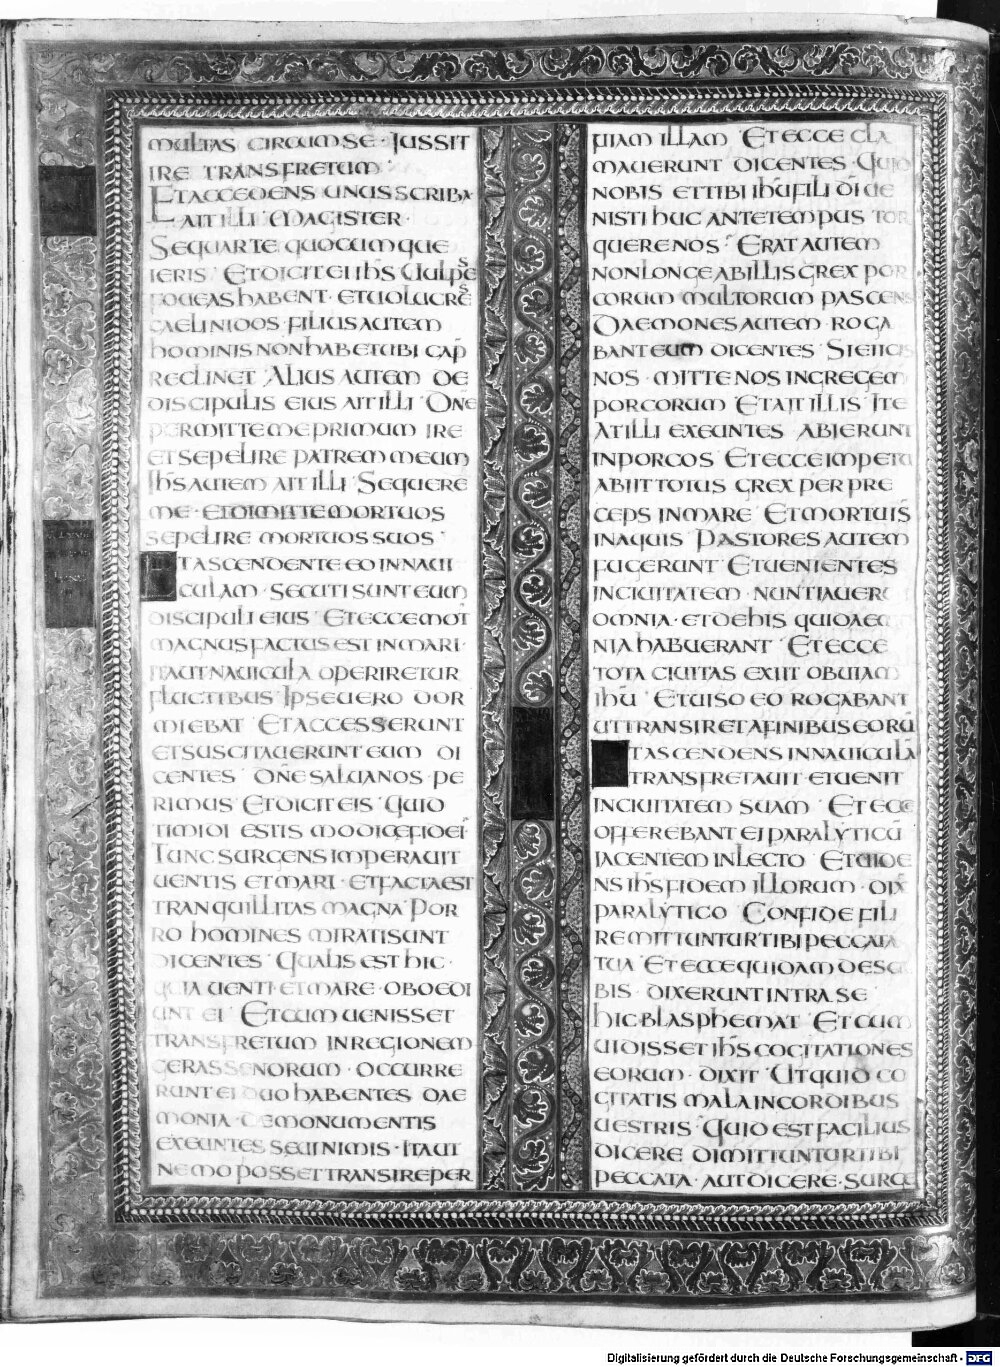 MULTAS CIRCUM SE · IUSSIT
IRE TRANSFRETUM ·
ET ACCEDENS UNUS SCRIBA
AIT ILLI · MAGISTER ·
SEQUAR TE QUOCUMQUE
IERIS · ET DICIT EI IH̅S UULPE̅S
FOUEAS HABENT · ET UOLUCRE̅S
CAELI NIDOS · FILIUS AUTEM
HOMINIS NON HABET UBI CAP̅
RECLINET · ALIUS AUTEM DE
DISCIPULIS EIUS AIT ILLI · DN̅E
PERMITTE ME PRIMUM IRE
ET SEPELIRE PATREM MEUM
IH̅S AUTEM AIT ILLI · SEQUERE
ME · ET DIMITTE MORTUOS
SEPELIRE MORTUOS SUOS ·
ET ASCENDENTE EO IN NAUI
CULAM · SECUTI SUNT EUM
DISCIPULI EIUS · ET ECCE MOT̅
MAGNUS FACTUS EST IN MARI ·
ITAUT NAUICULA OPERIRETUR
FLUCTIBUS · IPSE UERO DOR
MIEBAT · ET ACCESSERUNT
ET SUSCITAUERUNT EUM DI
CENTES · DN̅E SALUA NOS · PE
RIMUS · ET DICIT EIS · QUID
TIMIDI ESTIS MODICE FIDEI ·
TUNC SURGENS IMPERAUIT
UENTIS ET MARI · ET FACTA EST
TRANQUILLITAS MAGNA · POR
RO HOMINES MIRATI SUNT
DICENTES · QUALIS EST HIC ·
QUIA UENTI · ET MARE · OBOEDI
UNT EI · ET CUM UENISSET
TRANSFRETUM IN REGIONEM
GERASSENORUM · OCCURRE
RUNT EI DUO HABENTES DAE
MONIA · DE MONUMENTIS
EXEUNTES SEUI NIMIS · ITAUT
NEMO POSSET TRANSIRE PER
UIAM ILLAM · ET ECCE CLA
MAUERUNT DICENTES QUID
NOBIS ET TIBI IH̅U FILI DI̅ UE
NISTI HUC ANTE TEMPUS TOR
QUERE NOS · ERAT AUTEM
NON LONGE AB ILLIS GREX POR
CORUM MULTORUM PASCENS
DAEMONES AUTEM · ROGA
BANT EUM DICENTES · SI EIICIS
NOS · MITTE NOS IN GREGEM
PORCORUM · ET AIT ILLIS · ITE
AT ILLI EXEUNTES ABIERUNT
IN PORCOS · ET ECCE IMPETU
ABIIT TOTUS GREX PER PRE
CEPS IN MARE · ET MORTUI S̅
IN AQUIS · PASTORES AUTEM
FUGERUNT · ET UENIENTES
IN CIUITATEM · NUNTIAUER̅
OMNIA · ET DE HIS QUI DAEMO
NIA HABUERANT · ET ECCE
TOTA CIUITAS EXIIT OBUIAM
IH̅U · ET UISO EO ROGABANT
UT TRANSIRET A FINIBUS EORU̅
ET ASCENDENS IN NAUICULA̅
TRANSFRETAUIT · ET UENIT
IN CIUITATEM SUAM · ET ECCE
OFFEREBANT EI PARALYTICU̅
IACENTEM IN LECTO · ET UIDE
NS IH̅S FIDEM ILLORUM · DIX̅
PARALYTICO · CONFIDE FILI
REMITTUNTUR TIBI PECCATA
TUA · ET ECCE QUIDAM DE SCRI
BIS · DIXERUNT INTRA SE
HIC BLASPHEMAT · ET CUM
UIDISSET IH̅S COGITATIONES
EORUM · DIXIT · UT QUID CO
GITATIS MALA IN CORDIBUS
UESTRIS · QUID EST FACILIUS
DICERE DIMITTUNTUR TIBI
PECCATA · AUT DICERE · SURGE
Digitalisierung gefördert durch die Deutsche Forschungsgemeinschaft - DFG